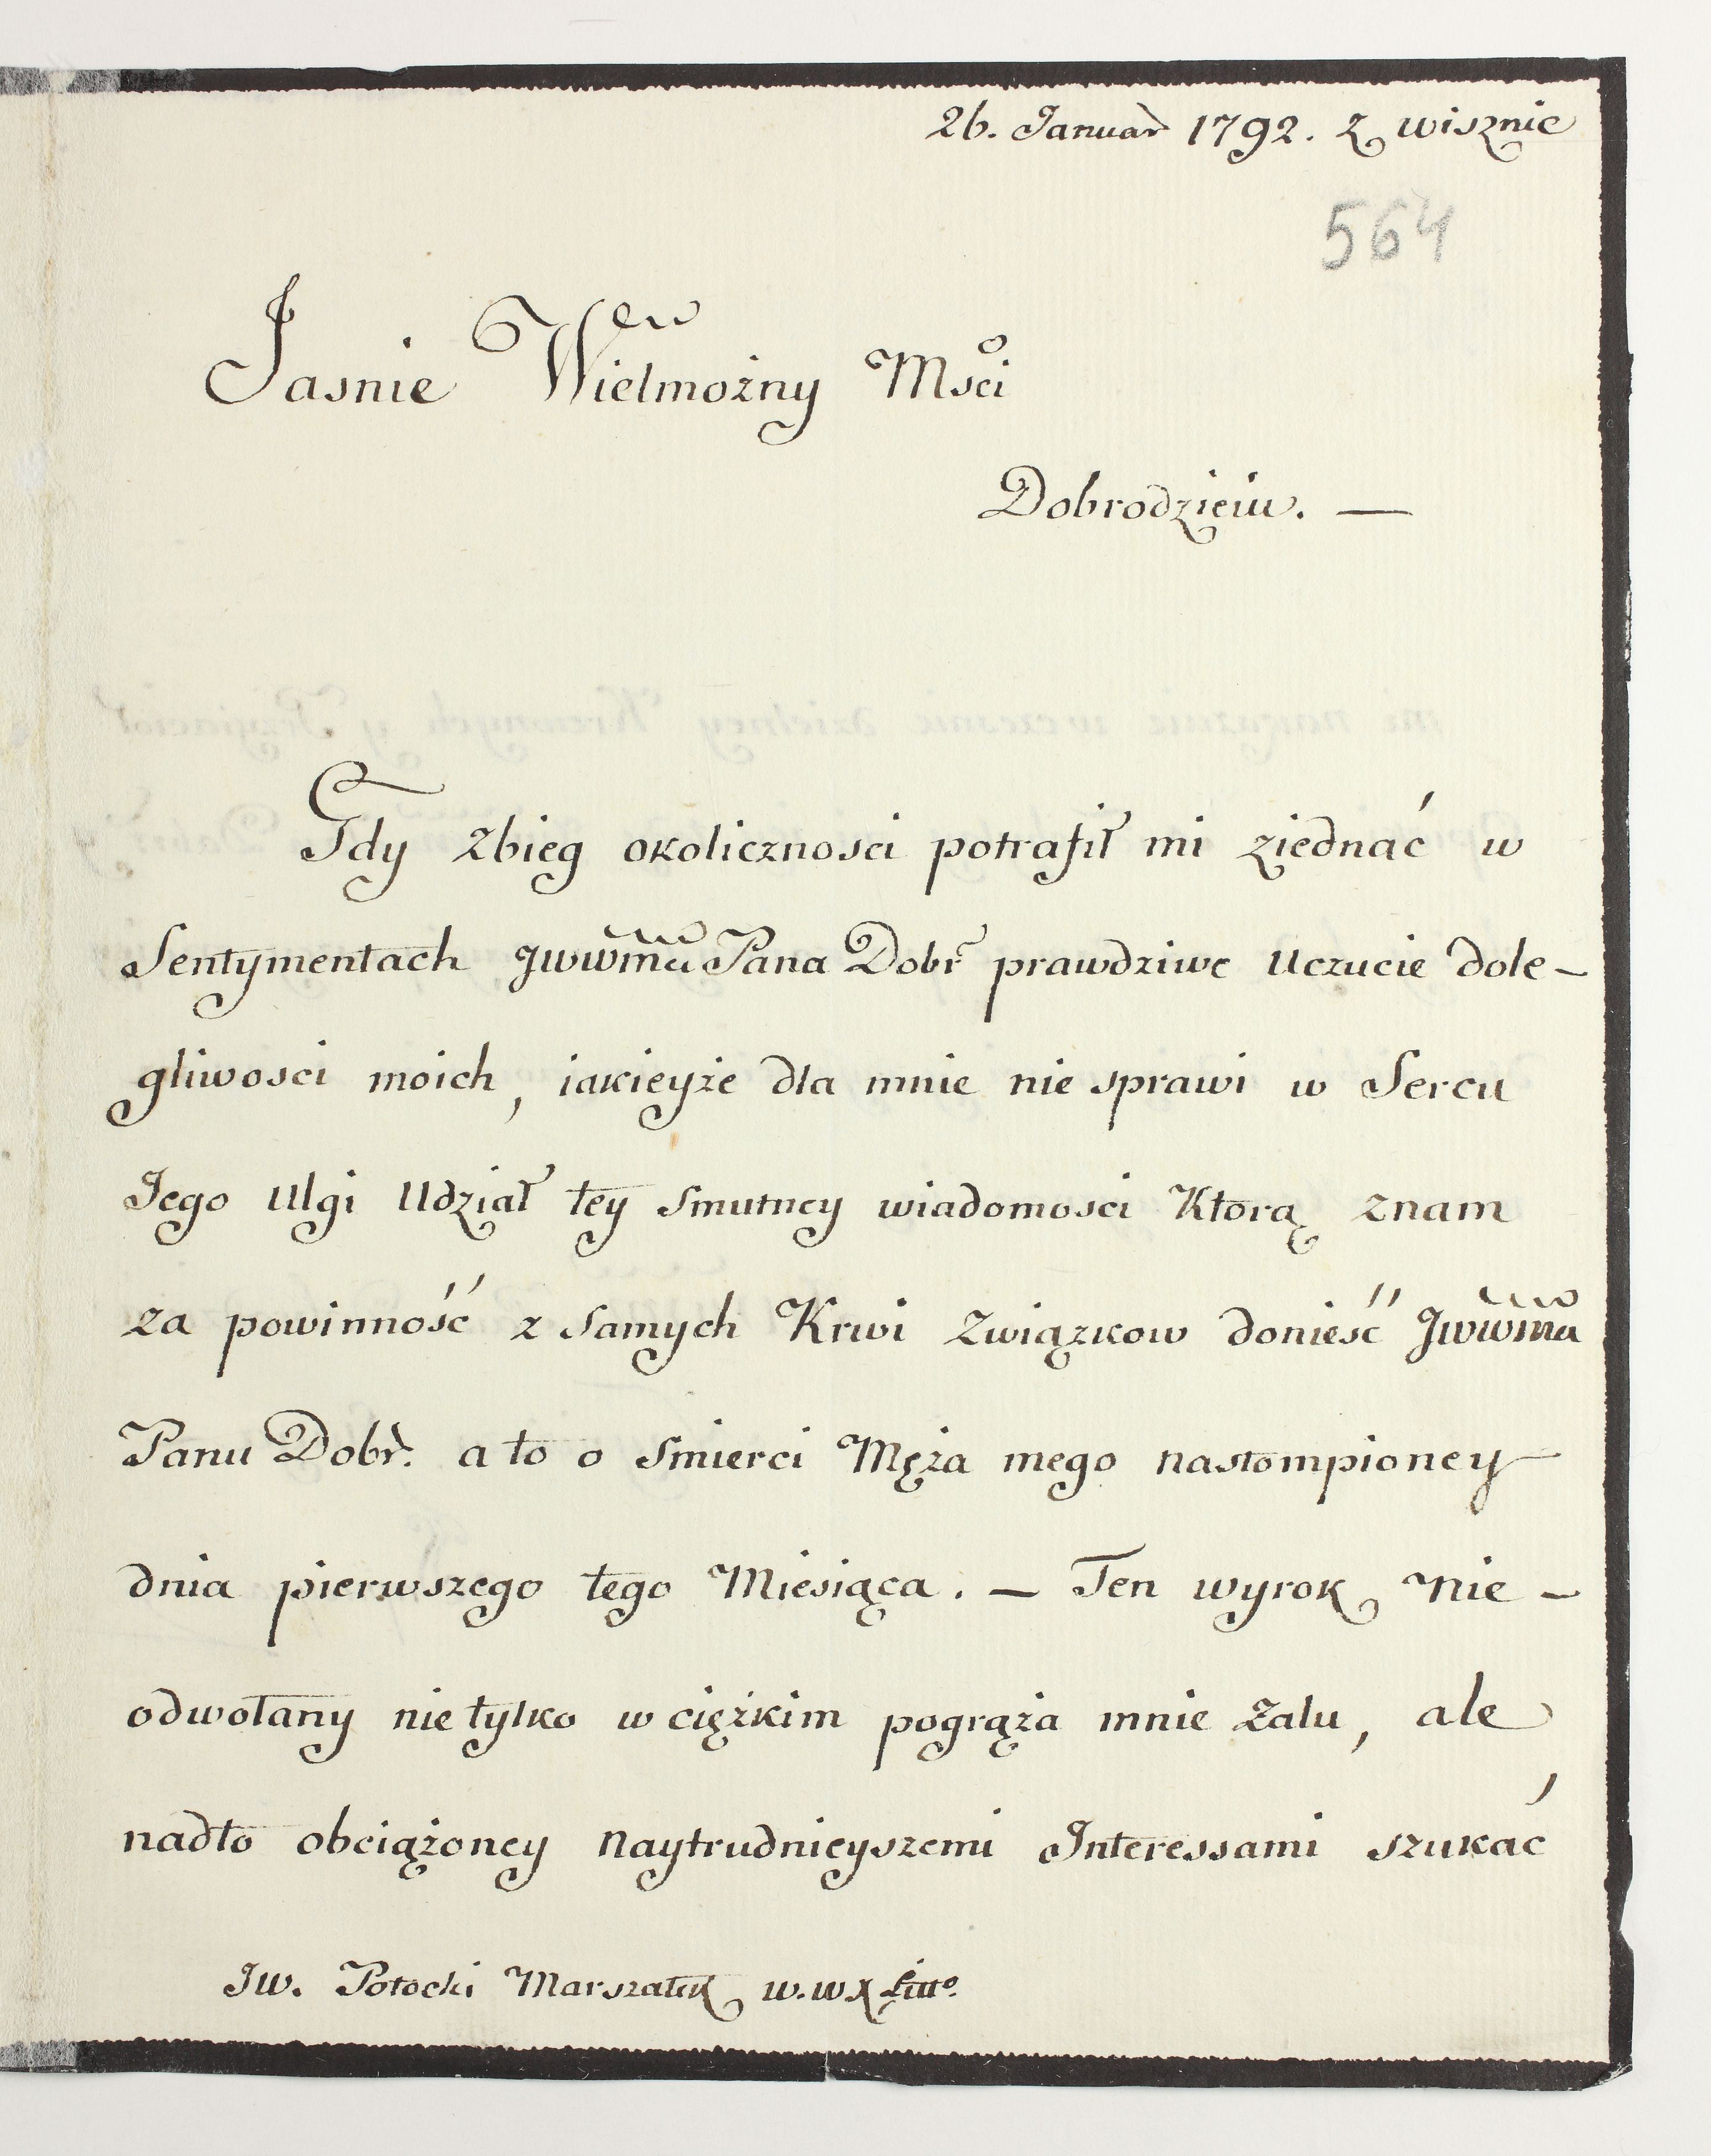 26. Januar 1792. z wisznic
564
Jasnie Wielmożny Msci
Dobrodzieiu. —
Gdy zbieg okolicznosci potrafił mi ziednać w
Sentymentach Jwwma Pana Dobr prawdziwe uczucie dole-
gliwosci moich, iakieyże dla mnie nie sprawi w Sercu
Jego ulgi Udział tey smutney wiadomosci Ktorą znam
za powinność z samych Krwi związkow donieść Jwwma
Panu Dobr. a to o smierci Męża mego nastompioney
dnia pierwszego tego Miesiąca. — Ten wyrok nie-
odwołany nie tylko w ciężkim pogrąża mnie żalu, ale
nadto obciążoney naytrudnieyszemi Interessami szukać
Jw. Potocki Marszałek w. w X Litto.